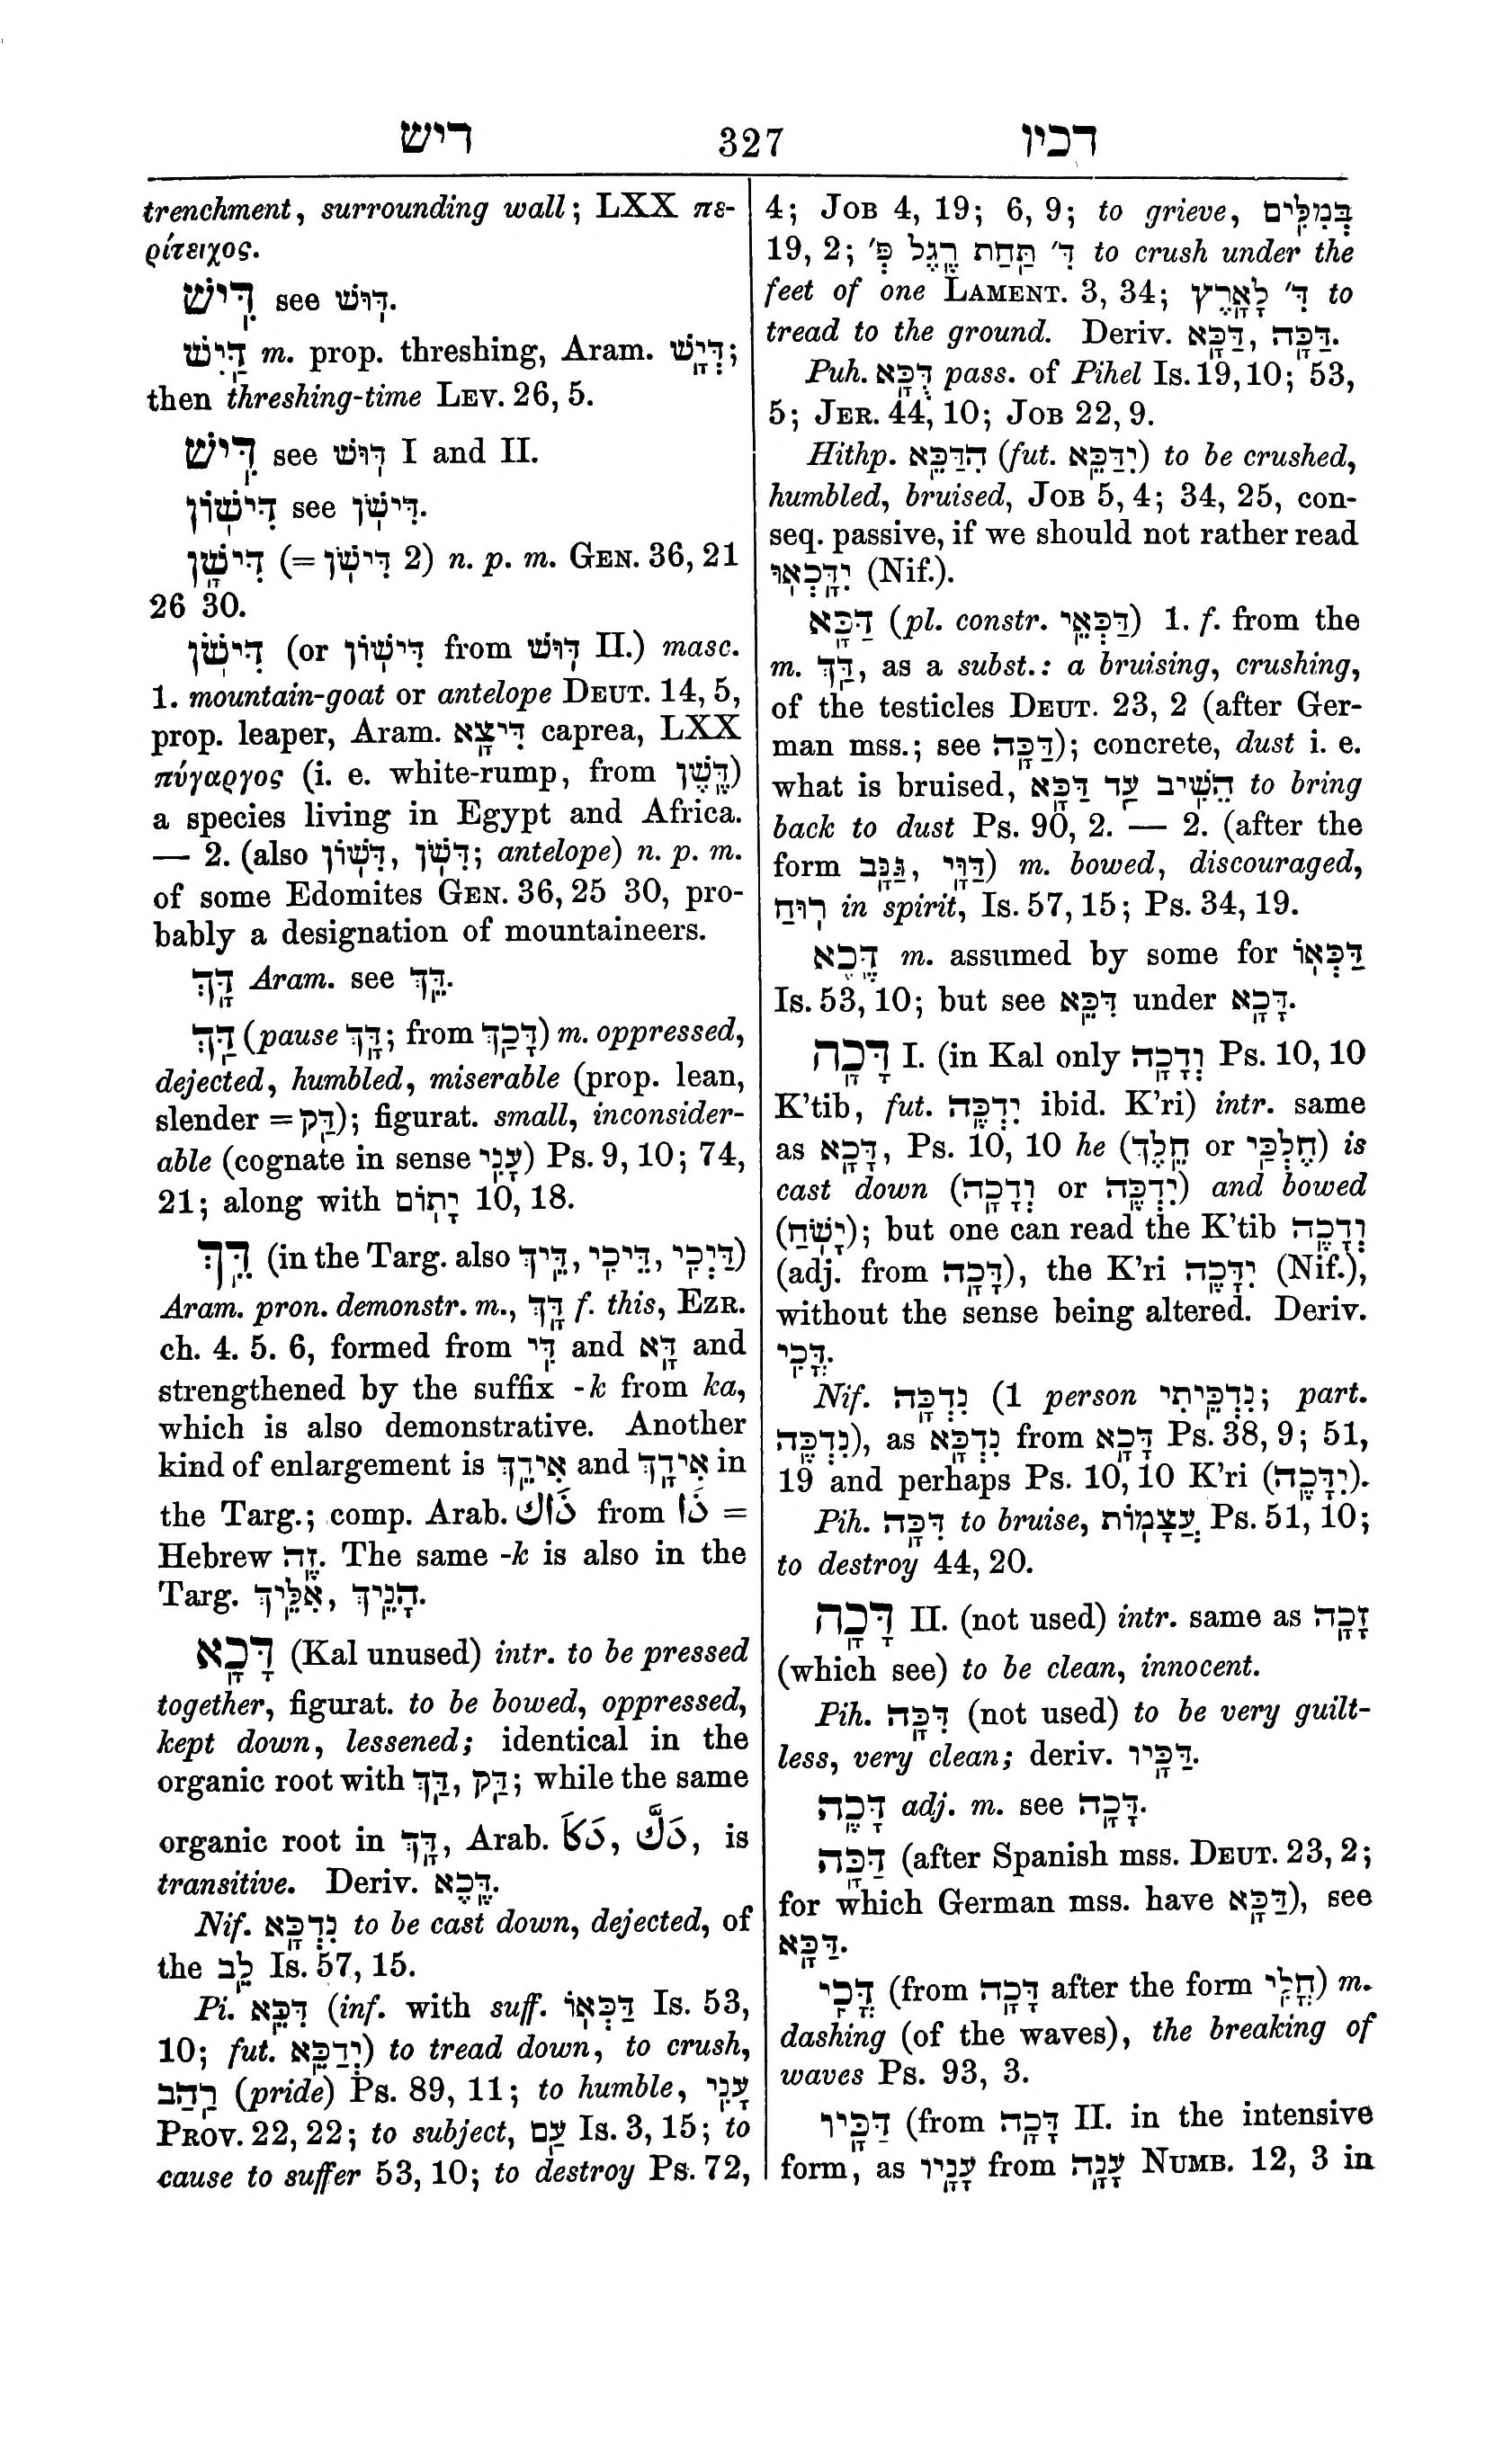 דיש 327 דכיו
trenchment, surrounding wall; LXX πε-
ρίτειχος.
דִּישׁ see דּוּשׁ.
דַּיִשׁ m. prop. threshing, Aram. דְּיָשׁ;
then threshing-time LEV. 26, 5.
דִּישׁ see דּוּשׁ I and II.
דִּישׁוֹן see דִּישֹׁן.
דִּישָׁן (= דִּישֹׁן 2) n. p. m. GEN. 36, 21
26 30.
דִּישֹׁן (or דִּישׁוֹן from דּוּשׁ II.) masc.
1. mountain-goat or antelope DEUT. 14, 5,
prop. leaper, Aram. דִּיצָא caprea, LXX
πύγαργος (i. e. white-rump, from דֶּשֶׁן)
a species living in Egypt and Africa.
— 2. (also דִּשׁוֹן, דִּשֹׁן; antelope) n. p. m.
of some Edomites GEN. 36, 25 30, pro-
bably a designation of mountaineers.
דָּךְ Aram. see דֵּךְ.
דַּךְ (pause דָּךְ; from דָּכַךְ) m. oppressed,
dejected, humbled, miserable (prop. lean,
slender = דַּק); figurat. small, inconsider-
able (cognate in sense עָנִי) Ps. 9, 10; 74,
21; along with יָתוֹם 10, 18.
דֵּךְ (in the Targ. also דֵּיךְ, דֵּיכִי, דַּיְכִי)
Aram. pron. demonstr. m., דָּךְ f. this, EZR.
ch. 4. 5. 6, formed from דִּי and דָּא and
strengthened by the suffix -k from ka,
which is also demonstrative. Another
kind of enlargement is אִידֵךְ and אִידָךְ in
the Targ.; comp. Arab. ذَاك from ذَا =
Hebrew זֶה. The same -k is also in the
Targ. אִלֵּיךְ, הָנֵיךְ.
דָּכָא (Kal unused) intr. to be pressed
together, figurat. to be bowed, oppressed,
kept down, lessened; identical in the
organic root with דַּךְ, דַּק; while the same
organic root in דָּךְ, Arab. دَكَا, دَكَّ, is
transitive. Deriv. דֶּכֶא.
Nif. נִדְכָּא to be cast down, dejected, of
the לֵב Is. 57, 15.
Pi. דִּכֵּא (inf. with suff. דַּכְּאוֹ Is. 53,
10; fut. יְדַכֵּא) to tread down, to crush,
רַהַב (pride) Ps. 89, 11; to humble, עָנִי
PROV. 22, 22; to subject, עַם Is. 3, 15; to
cause to suffer 53, 10; to destroy Ps. 72,
4; JOB 4, 19; 6, 9; to grieve, בְּמִלִּים
19, 2; דִּ' תַּחַת רֶגֶל פְּ' to crush under the
feet of one LAMENT. 3, 34; דִּ' לָאָרֶץ to
tread to the ground. Deriv. דַּכָּא, דַּכָּה.
Puh. דֻּכָּא pass. of Pihel Is. 19, 10; 53,
5; JER. 44, 10; JOB 22, 9.
Hithp. הִדַּכֵּא (fut. יִדַּכֵּא) to be crushed,
humbled, bruised, JOB 5, 4; 34, 25, con-
seq. passive, if we should not rather read
יִדָּכְאוּ (Nif.).
דַּכָּא (pl. constr. דַּכְּאֵי) 1. f. from the
m. דַּךְ, as a subst.: a bruising, crushing,
of the testicles DEUT. 23, 2 (after Ger-
man mss.; see דַּכָּה); concrete, dust i. e.
what is bruised, הֵשִׁיב עַד דַּכָּא to bring
back to dust Ps. 90, 2. — 2. (after the
form גַּנָּב, דַּוָּי) m. bowed, discouraged,
רוּחַ in spirit, Is. 57, 15; Ps. 34, 19.
דֶּכֶא m. assumed by some for דַּכְּאוֹ
Is. 53, 10; but see דִּכֵּא under דָּכָא.
דָּכָה I. (in Kal only וְדָכָה Ps. 10, 10
K'tib, fut. יִדְכֶּה ibid. K'ri) intr. same
as דָּכָא, Ps. 10, 10 he (חֵלֶךְ or חֶלְכַּי) is
cast down (וְדָכָה or יִדְכֶּה) and bowed
(יָשֹׁחַ); but one can read the K'tib וְדָכֶה
(adj. from דָּכָה), the K'ri יִדָּכֶה (Nif.),
without the sense being altered. Deriv.
דֳּכִי.
Nif. נִדְכָּה (1 person נִדְכֵּיתִי; part.
נִדְכֶּה), as נִדְכָּא from דָּכָא Ps. 38, 9; 51,
19 and perhaps Ps. 10, 10 K'ri (יִדָּכֶה).
Pih. דִּכָּה to bruise, עֲצָמוֹת Ps. 51, 10;
to destroy 44, 20.
דָּכָה II. (not used) intr. same as זָכָה
(which see) to be clean, innocent.
Pih. דִּכָּה (not used) to be very guilt-
less, very clean; deriv. דַּכָּיו.
דָּכֶה adj. m. see דָּכָה.
דַּכָּה (after Spanish mss. DEUT. 23, 2;
for which German mss. have דַּכָּא), see
דַּכָּא.
דֳּכִי (from דָּכָה after the form חֳלִי) m.
dashing (of the waves), the breaking of
waves Ps. 93, 3.
דַּכָּיו (from דָּכָה II. in the intensive
form, as עָנָיו from עָנָה NUMB. 12, 3 in